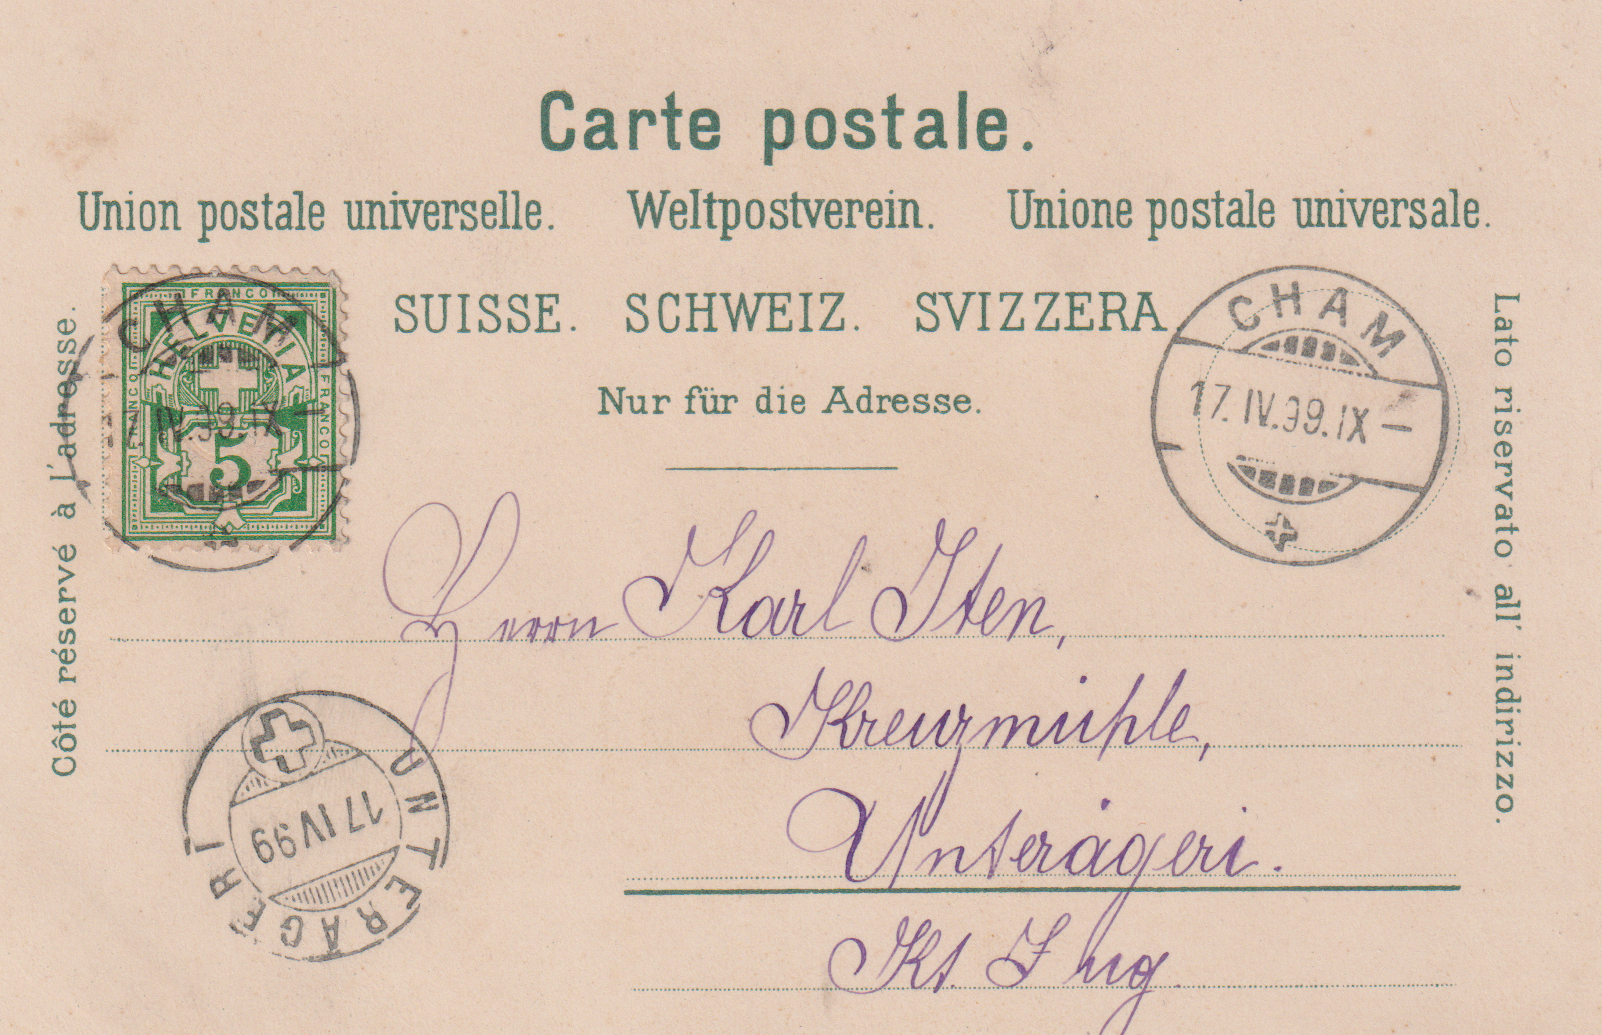 Carte postale.
Union postale universelle. Weltpostverein. Unione postale universale.
SUISSE. SCHWEIZ. SVIZZERA
Nur für die Adresse.
Côté réservé à l'adresse.
Lato riservato all' indirizzo.
FRANCO
FRANCO
FRANCO
HELVETIA
5
CHAM
17.IV.99.IX–
CHAM
17.IV.99.IX–
Herrn Karl Iten,
Kreuzmühle,
Unterägeri.
Kt. Zug.
UNTERÄGERI
17 IV 99